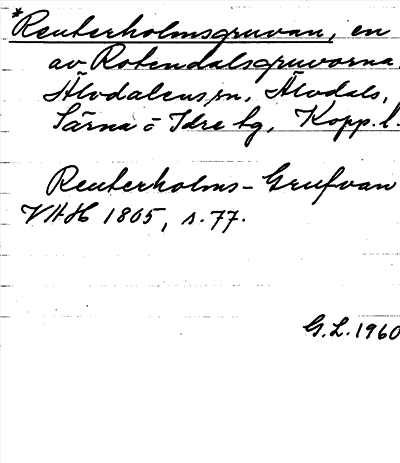 *Reuterholmsgruvan, en
av Rotendalsgruvorna,
Älvdalens sn, Älvdals,
Särna o Idre tg, Kopp. l.
Reuterholms-Grufvan
VAH 1805, s. 77.
G.L. 1960